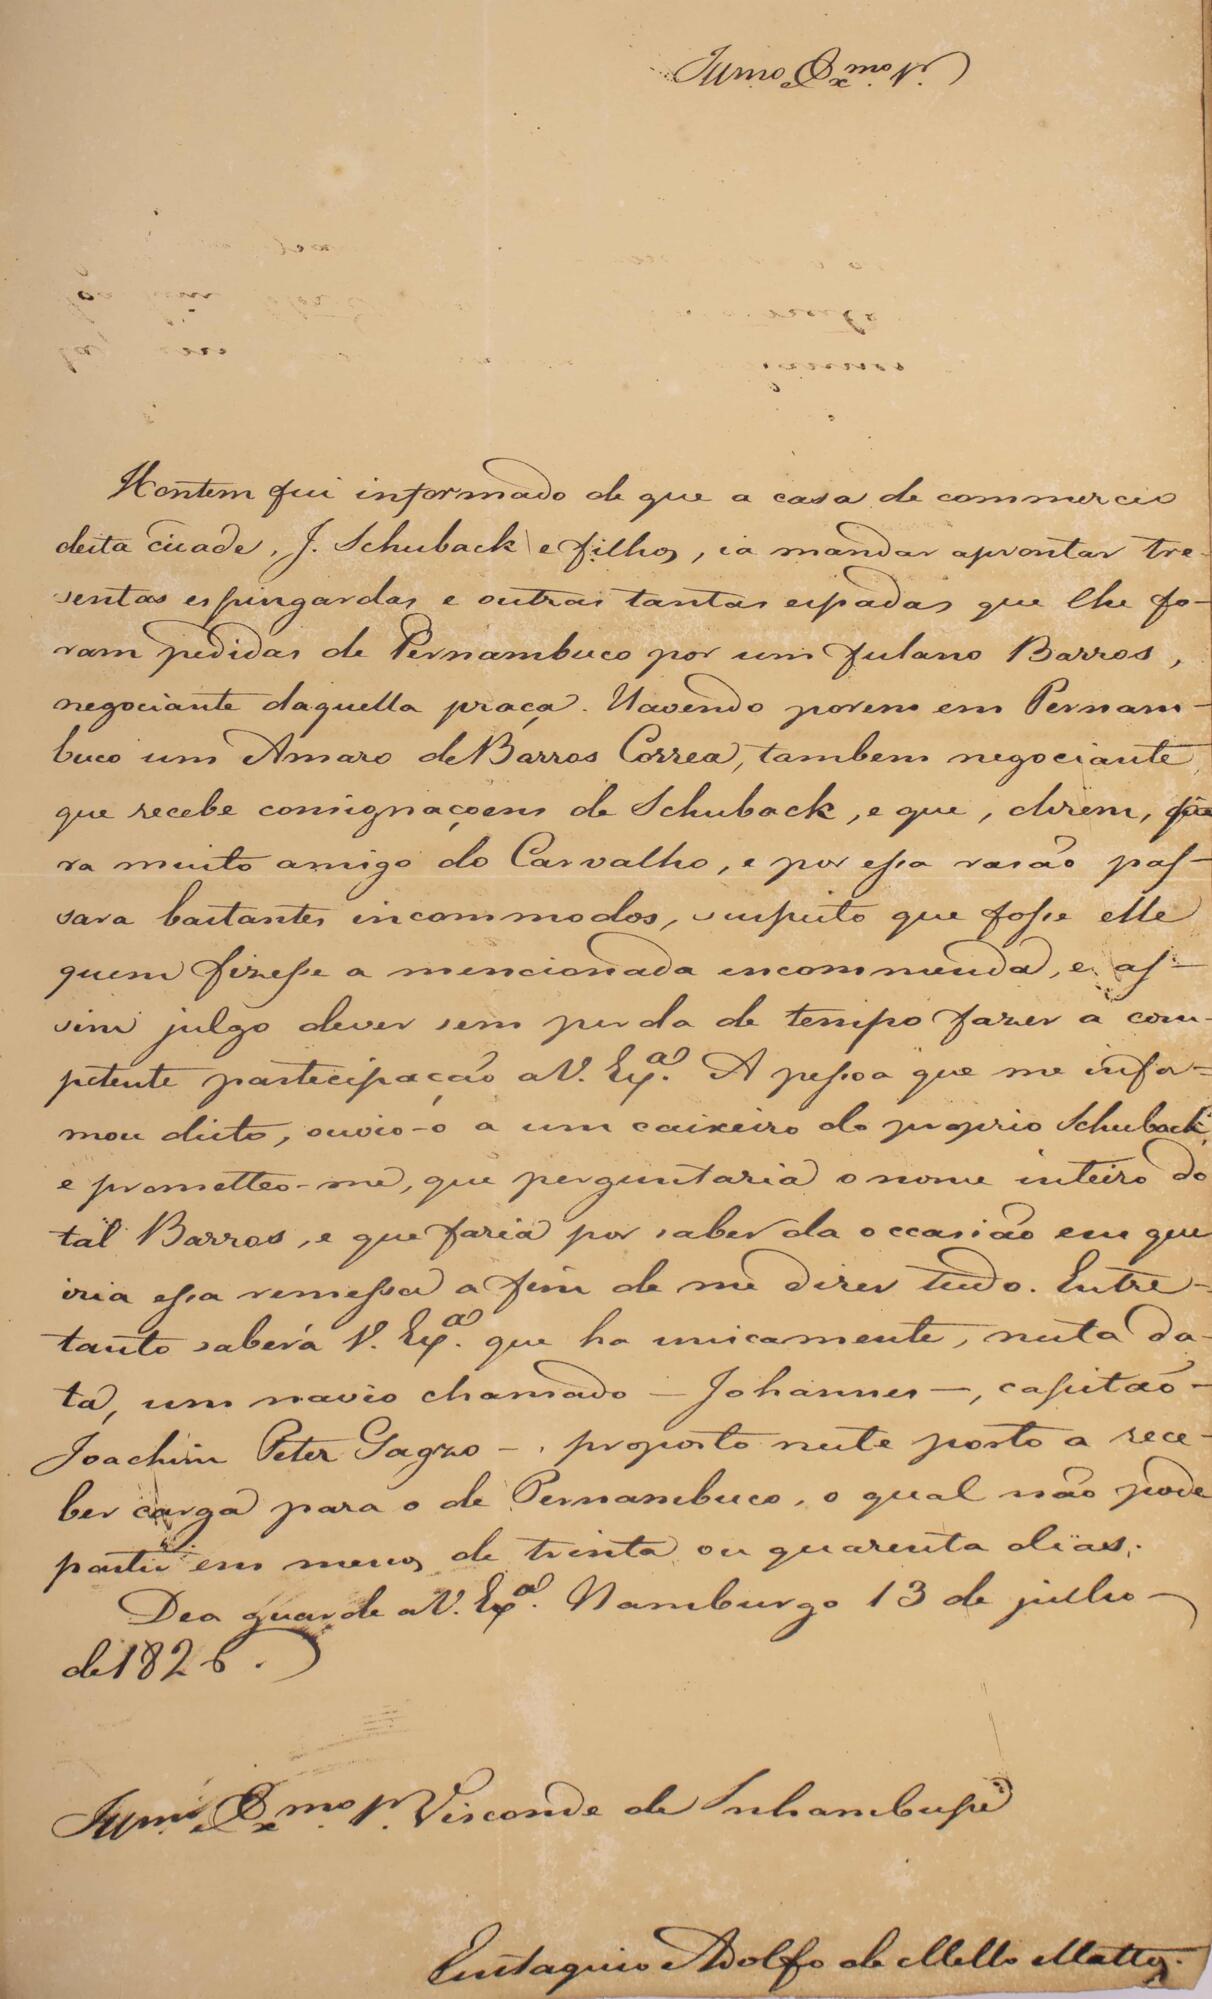 Illmo Exmo Sr.
Hontem fui informado de que a casa de commercio
desta cidade, J. Schuback e filhos, ia mandar aprontar tre-
sentas espingardas e outras tantas espadas que lhe fo-
ram pedidas de Pernambuco por um fulano Barros,
negociante daquella praça. Havendo porem em Pernam-
buco um Amaro de Barros Correa, tambem negociante
que recebe consignaçoens de Schuback, e que, dizem, fo-
ra muito amigo do Carvalho, e por essa rasão pas-
sara bastantes incommodos, suspeito que fosse elle
quem fizesse a mencionada encommenda, e as-
sim julgo dever sem perda de tempo fazer a com-
petente participação a V. Exa. A pessoa que me infor-
mou disto, ouvio-o a um caixeiro do proprio Schuback,
e prometteo-me, que perguntaria o nome inteiro do
tal Barros, e que faria por saber da occasião em que
iria essa remessa a fim de me dizer tudo. Entre-
tanto saberá V. Exa. que ha unicamente, nesta da-
ta, um navio chamado — Johannes —, capitão —
Joachim Peter — , proposto neste porto a rece-
ber carga para o de Pernambuco, o qual não pode
partir em menos de trinta ou quarenta dias.
Deos guarde a V. Exa. Hamburgo 13 de julho
de 1826.
Illmo Exmo Sr. Visconde de Inhambupe
Eustaquio Adolfo de Mello Mattos.